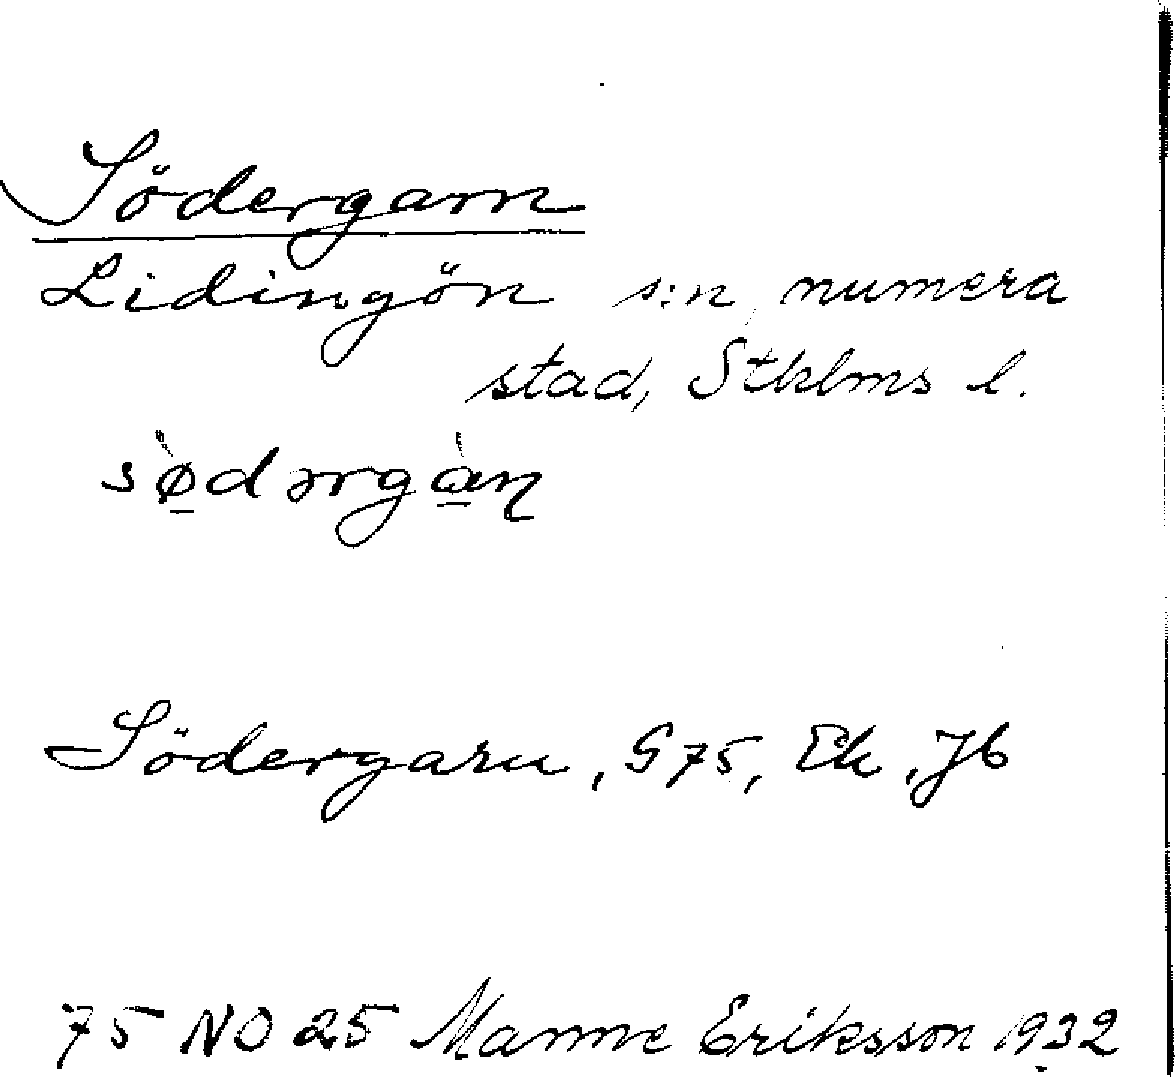 Södergarn
Lidingön s:n, numera
stad, Stklms l.
sø̀dərgàɳ
Södergarn, G75, Ek, Jb
75 NO 25 Manne Eriksson 1932